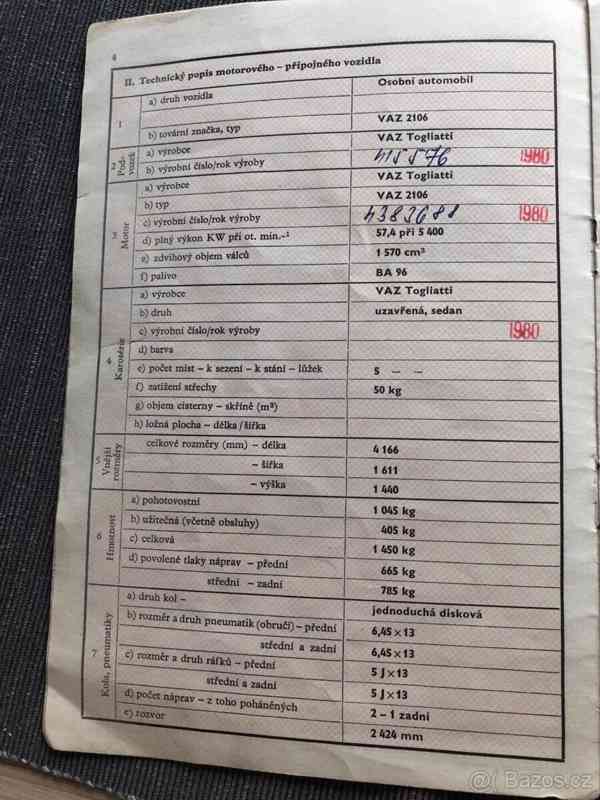 4
II. Technický popis motorového – přípojného vozidla
1
a) druh vozidla Osobní automobil
b) tovární značka, typ VAZ 2106
2 Podvozek
a) výrobce VAZ Togliatti
b) výrobní číslo/rok výroby 415576 1980
3 Motor
a) výrobce VAZ Togliatti
b) typ VAZ 2106
c) výrobní číslo/rok výroby 4383688 1980
d) plný výkon KW při ot. min.-¹ 57,4 při 5 400
e) zdvihový objem válců 1 570 cm³
f) palivo BA 96
4 Karosérie
a) výrobce VAZ Togliatti
b) druh uzavřená, sedan
c) výrobní číslo/rok výroby 1980
d) barva
e) počet míst – k sezení – k stání – lůžek 5 — —
f) zatížení střechy 50 kg
g) objem cisterny – skříně (m³)
h) ložná plocha – délka/šířka
5 Vnější rozměry
celkové rozměry (mm) – délka 4 166
– šířka 1 611
– výška 1 440
6 Hmotnost
a) pohotovostní 1 045 kg
b) užitečná (včetně obsluhy) 405 kg
c) celková 1 450 kg
d) povolené tlaky náprav – přední 665 kg
střední – zadní 785 kg
7 Kola, pneumatiky
a) druh kol – jednoduchá disková
b) rozměr a druh pneumatik (obručí) – přední 6,45 × 13
střední a zadní 6,45 × 13
c) rozměr a druh ráfků – přední 5 J × 13
střední a zadní 5 J × 13
d) počet náprav – z toho poháněných 2 – 1 zadní
e) rozvor 2 424 mm
Bazos.cz